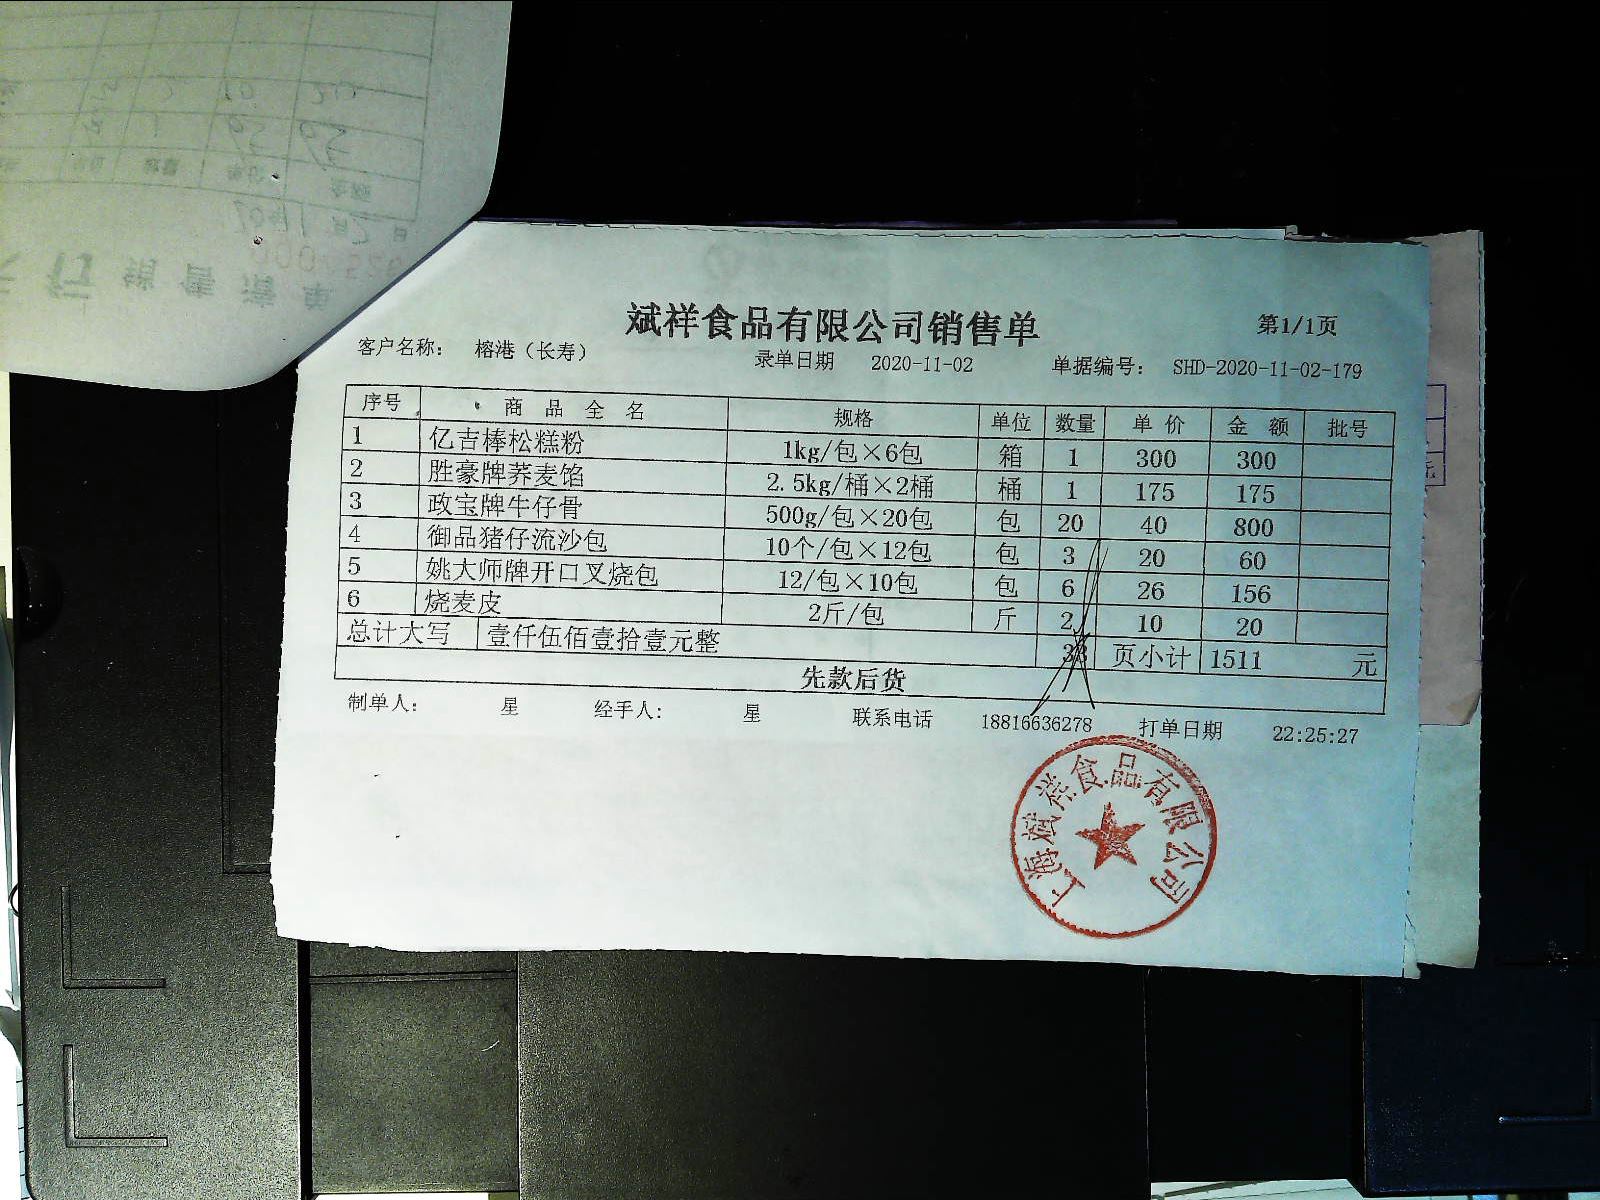 斌祥食品有限公司销售单
第1/1页
客户名称： 榕港（长寿） 录单日期 2020-11-02 单据编号： SHD-2020-11-02-179
序号 商品全名 规格 单位 数量 单价 金额 批号
1 亿吉棒松糕粉 1kg/包×6包 箱 1 300 300
2 胜豪牌荞麦馅 2.5kg/桶×2桶 桶 1 175 175
3 政宝牌牛仔骨 500g/包×20包 包 20 40 800
4 御品猪仔流沙包 10个/包×12包 包 3 20 60
5 姚大师牌开口叉烧包 12/包×10包 包 6 26 156
6 烧麦皮 2斤/包 斤 2 10 20
总计大写 壹仟伍佰壹拾壹元整 33 页小计 1511 元
先款后货
制单人： 星 经手人： 星 联系电话 18816636278 打单日期 22:25:27
上海斌祥食品有限公司
销售清单